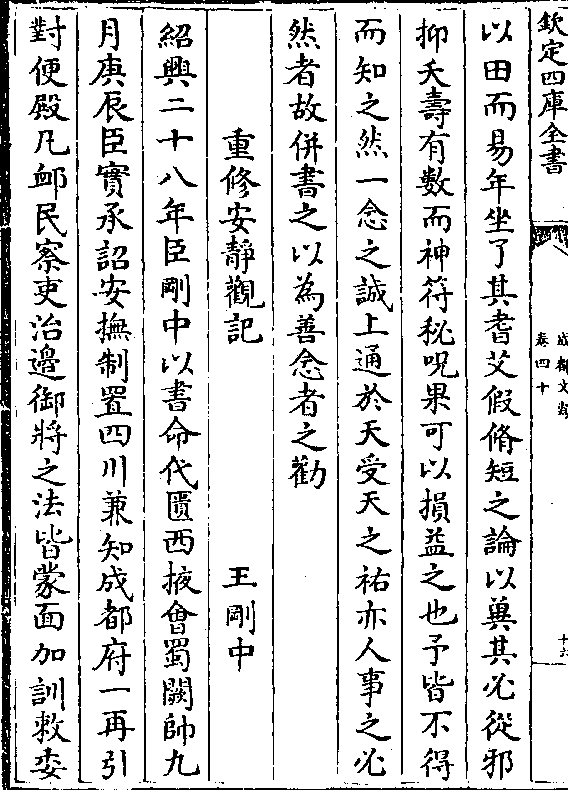 欽定四庫全書
成都文類
卷四十
十六
以田而易年坐了其耆艾假脩短之論以冀其必從邪
抑夭壽有數而神符秘呪果可以損益之也予皆不得
而知之然一念之誠上通於天受天之祐亦人事之必
然者故併書之以為善念者之勸
重修安靜觀記
王剛中
紹興二十八年臣剛中以書命代匱西掖會蜀闕帥九
月庚辰臣實承詔安撫制置四川兼知成都府一再引
對便殿凡卹民察吏治邊御將之法皆蒙面加訓敕委